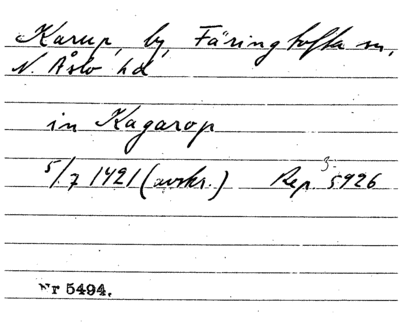 Karup, by, Färingtofta sn,
N. Åsbo hd
in Kagarop
5/7 1421 (avskr.) Rep. 3 5926
Nr 5494.